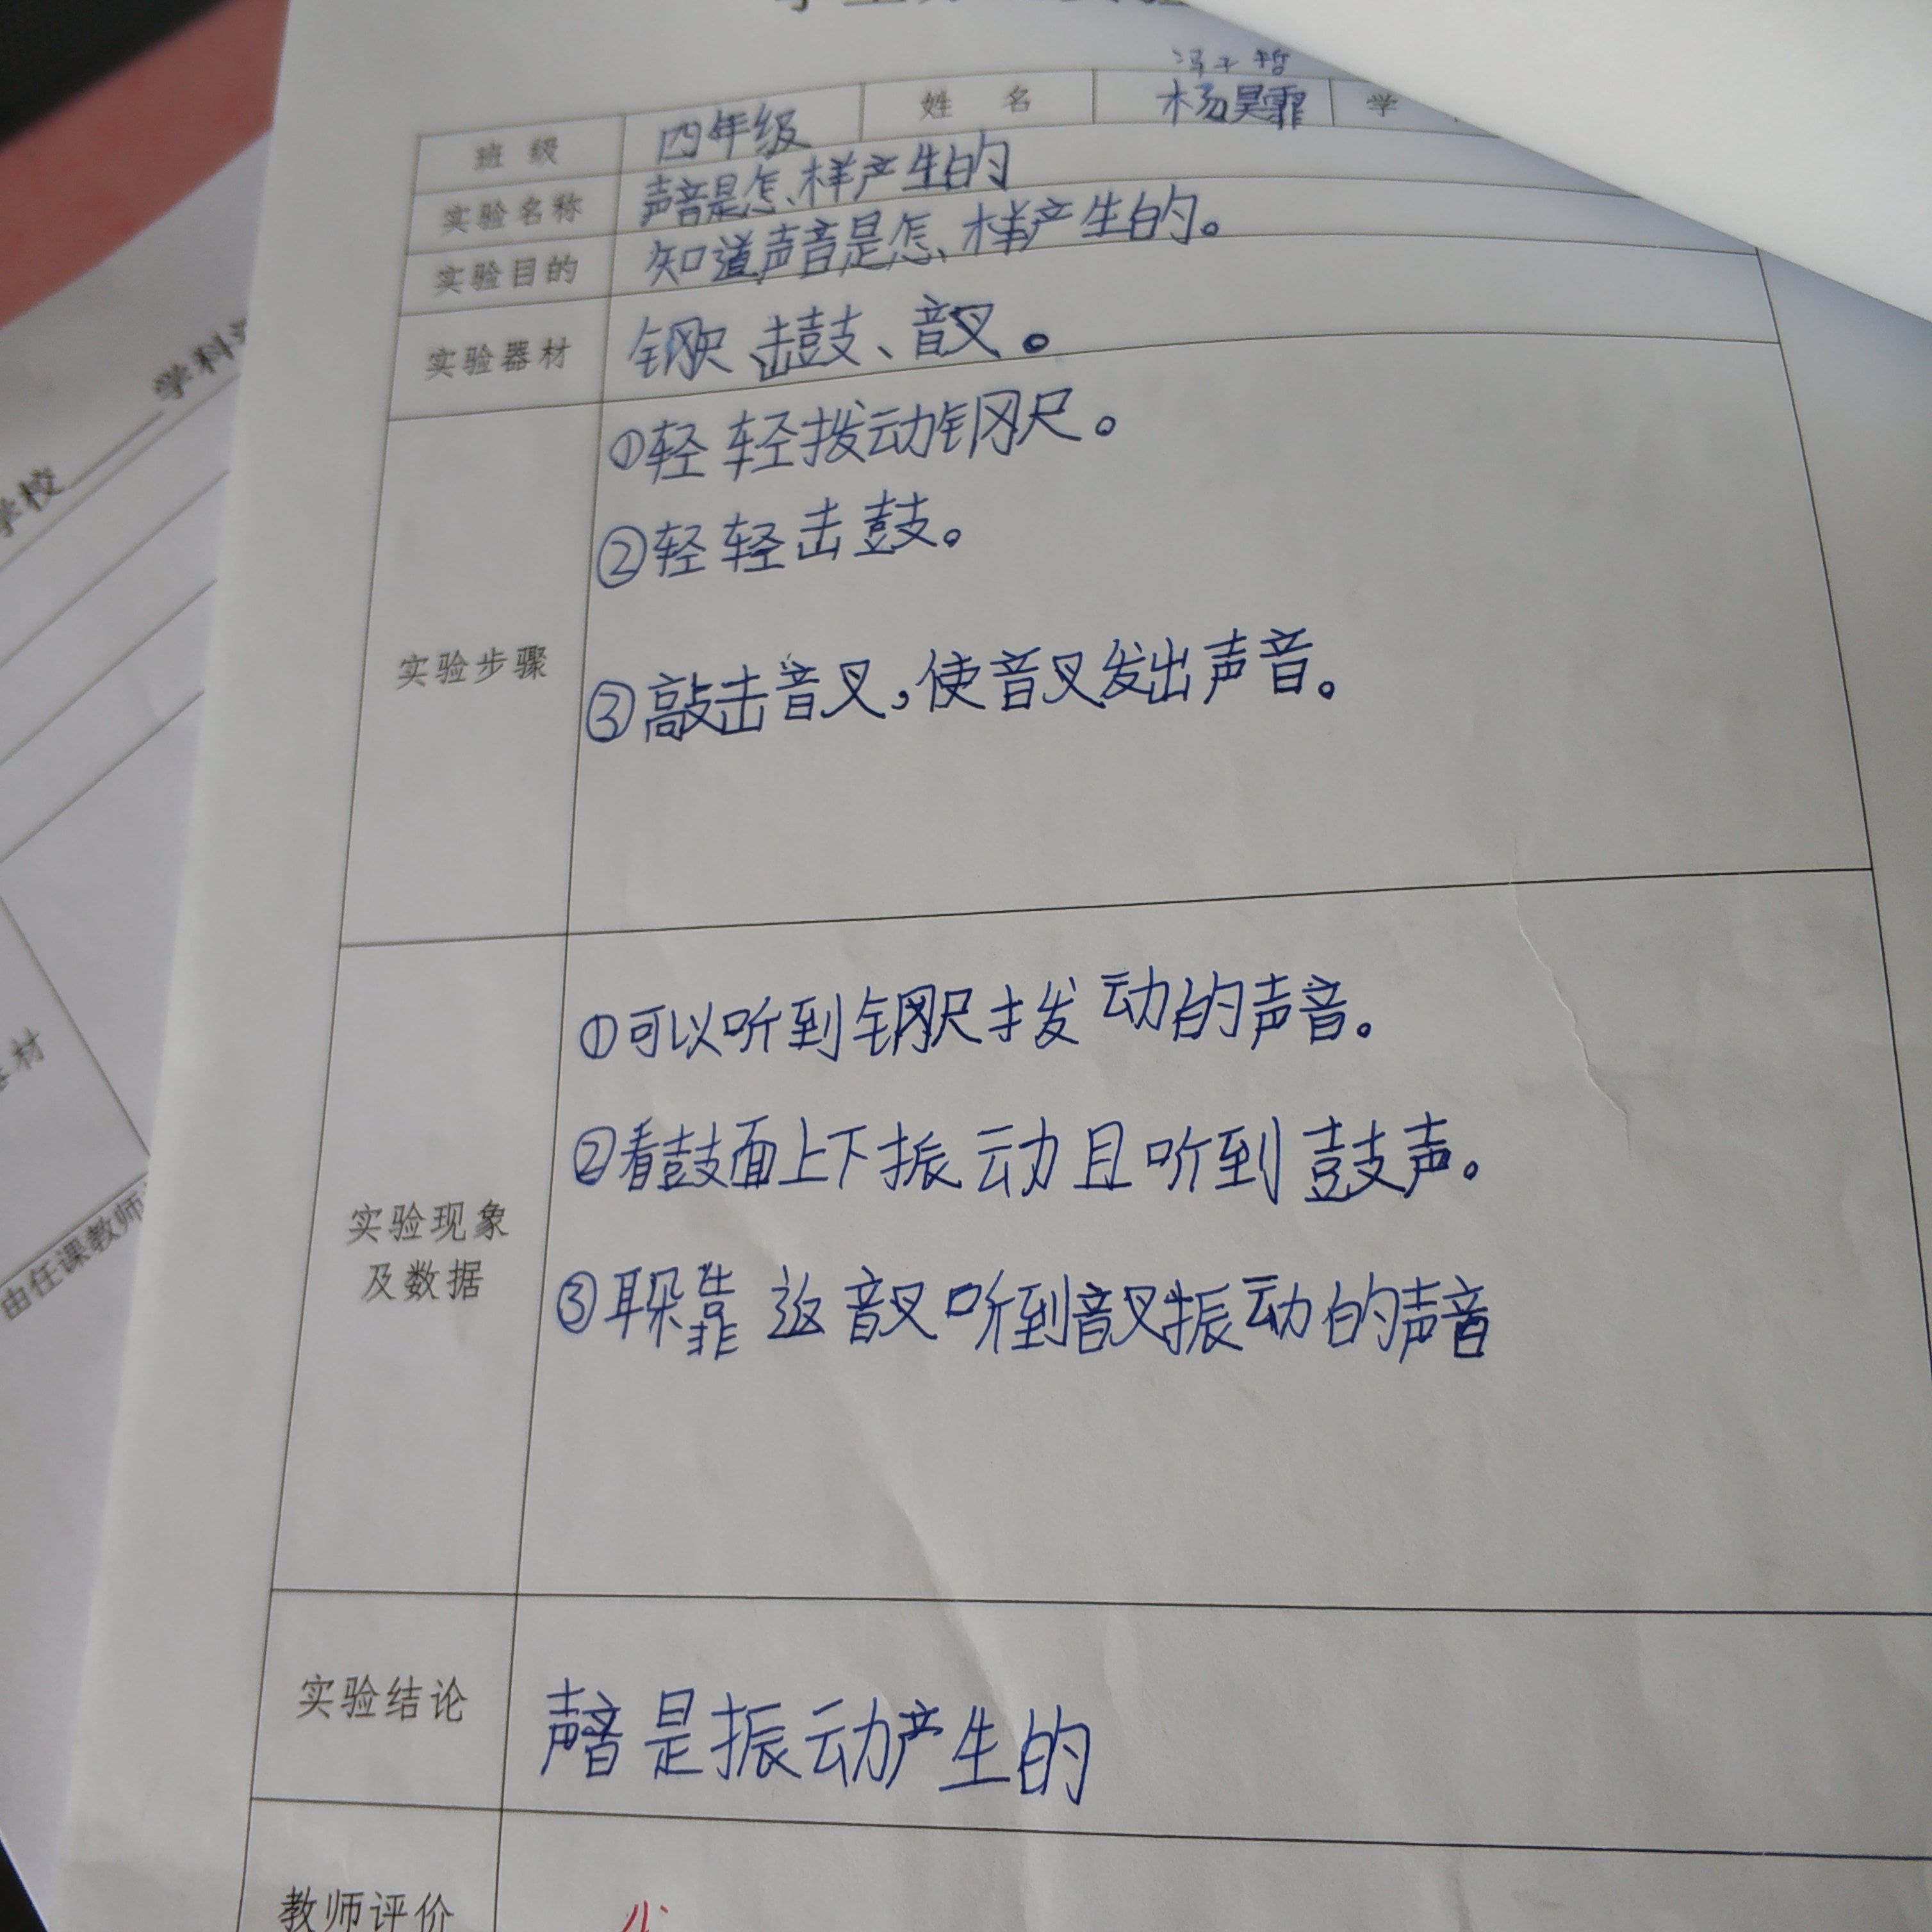 冯子哲
班级 四年级 姓名 杨昊霏 学
实验名称 声音是怎样产生的
实验目的 知道声音是怎样产生的。
实验器材 钢尺、击鼓、音叉。
实验步骤
①轻轻拨动钢尺。
②轻轻击鼓。
③敲击音叉，使音叉发出声音。
实验现象
及数据
①可以听到钢尺拨动的声音。
②看鼓面上下振动且听到鼓声。
③耳朵靠近音叉听到音叉振动的声音
实验结论 声音是振动产生的
教师评价
学科
学校
材
由任课教师